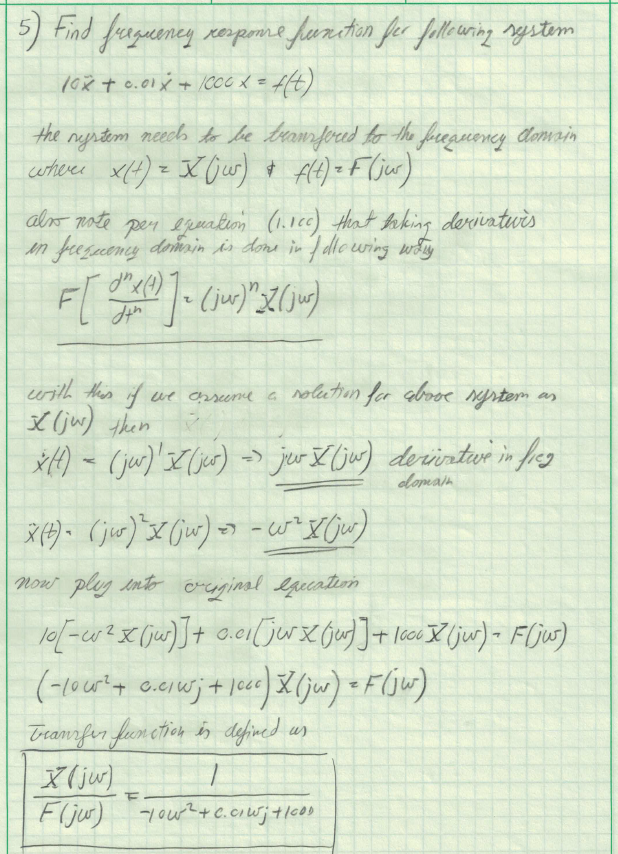 5) Find frequency response function for following system
10ẍ + 0.01ẋ + 1000x = f(t)
the system needs to be transfered to the frequency domain
where x(t) = X(jω) & f(t) = F(jω)
also note per equation (1.100) that taking derivatives
in frequency domain is done in following way
F[dⁿx(t)/dtⁿ] = (jω)ⁿ X(jω)
with this if we assume a solution for above system as
X(jω) then
ẋ(t) = (jω)¹ X(jω) => jω X(jω) derivative in freq
domain
ẍ(t) = (jω)² X(jω) => -ω² X(jω)
now plug into original equation
10[-ω² X(jω)] + 0.01[jω X(jω)] + 1000 X(jω) = F(jω)
(-10ω² + 0.01ωj + 1000) X(jω) = F(jω)
transfer function is defined as
X(jω)/F(jω) = 1/(-10ω² + 0.01ωj + 1000)